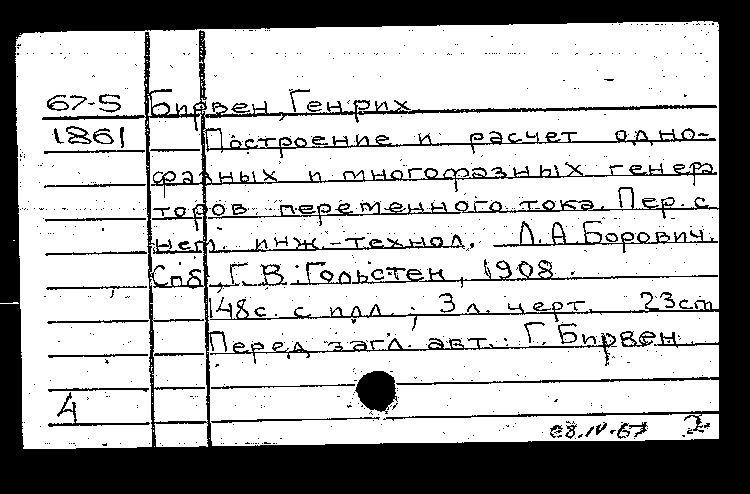 67-5 Бирвен, Генрих
1861 Построение и расчет одно-
фазных и многофазных генера
торов переменного тока. Пер. с
нем. инж.-технол. Л.А.Борович.
Спб, Г.В.Гольстен, 1908.
148с. с илл.; 3л. черт. 23см
Перед загл. авт.: Г. Бирвен
4
28.IV.67 2